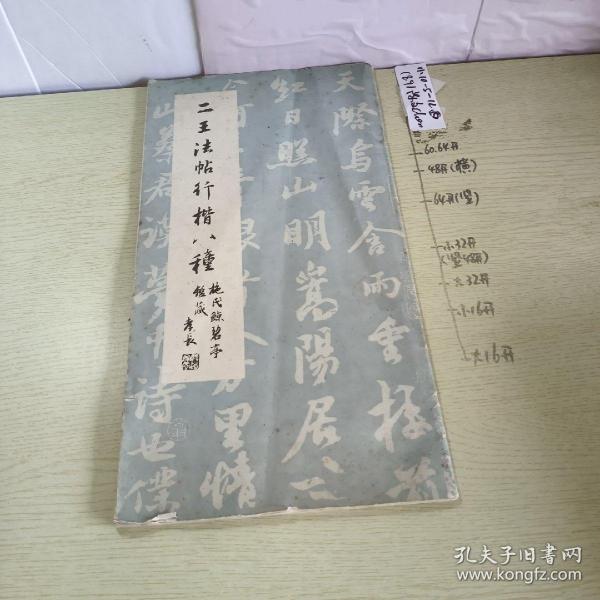 二王法帖行楷八種
施氏鯨碧亭
鑑藏
天際烏雲含雨重樓前
紅日照山明嵩陽居士
今何在青眼看人万里情
山蔡君謨夢中詩也僕
60.64开
48开(横)
64开(竖)
小32开
(竖48开)
大32开
小16开
大16开
孔夫子旧书网
www.kongfz.com